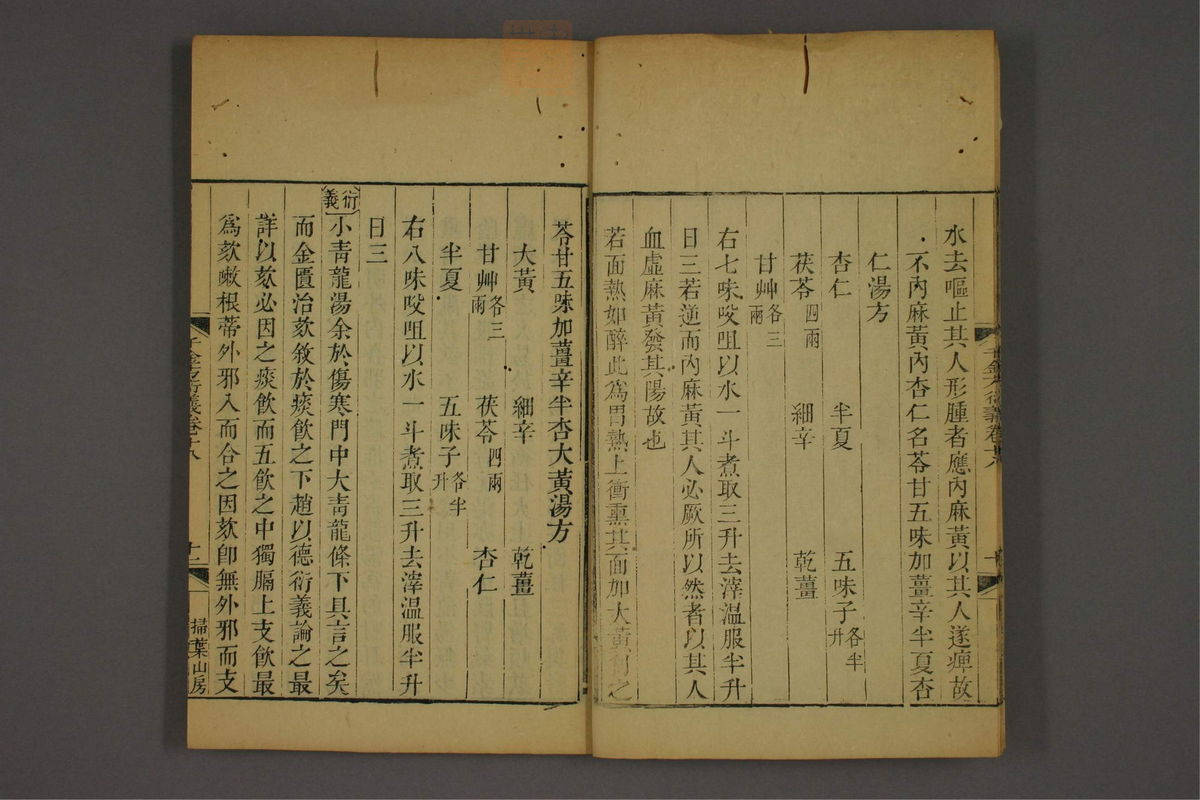 水去嘔止其人形腫者應內麻黃以其人遂痺故
不內麻黃內杏仁名苓甘五味加薑辛半夏杏
仁湯方
杏仁 半夏 五味子各半升
茯苓四兩 細辛 乾薑
甘艸各三兩
右七味㕮咀以水一斗煮取三升去滓溫服半升
日三若逆而內麻黃其人必厥所以然者以其人
血虛麻黃發其陽故也
若面熱如醉此爲胃熱上衝熏其面加大黃利之
苓甘五味加薑辛半杏大黃湯方
大黃 細辛 乾薑
甘艸各三兩 茯苓四兩 杏仁
半夏 五味子各半升
右八味㕮咀以水一斗煮取三升去滓溫服半升
日三
衍義 小青龍湯余於傷寒門中大青龍條下具言之矣
而金匱治欬敘於痰飲之下趙以德衍義論之最
詳以欬必因之痰飲而五飲之中獨膈上支飲最
爲欬嗽根蒂外邪入而合之因欬卽無外邪而支
千金方衍義卷十八
十一
掃葉山房